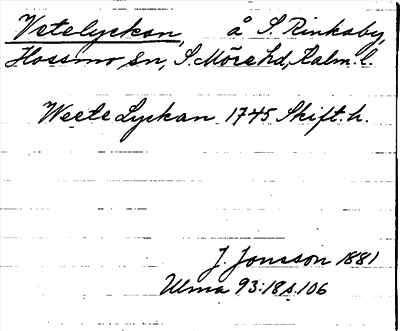 Vetelyckan, å S. Rinkaby,
Hossmo sn, S. Möre hd, Kalm. l.
Weete Lyckan 1745 Skift. h.
J. Jonsson 1881
Ulma 93:18 s. 106